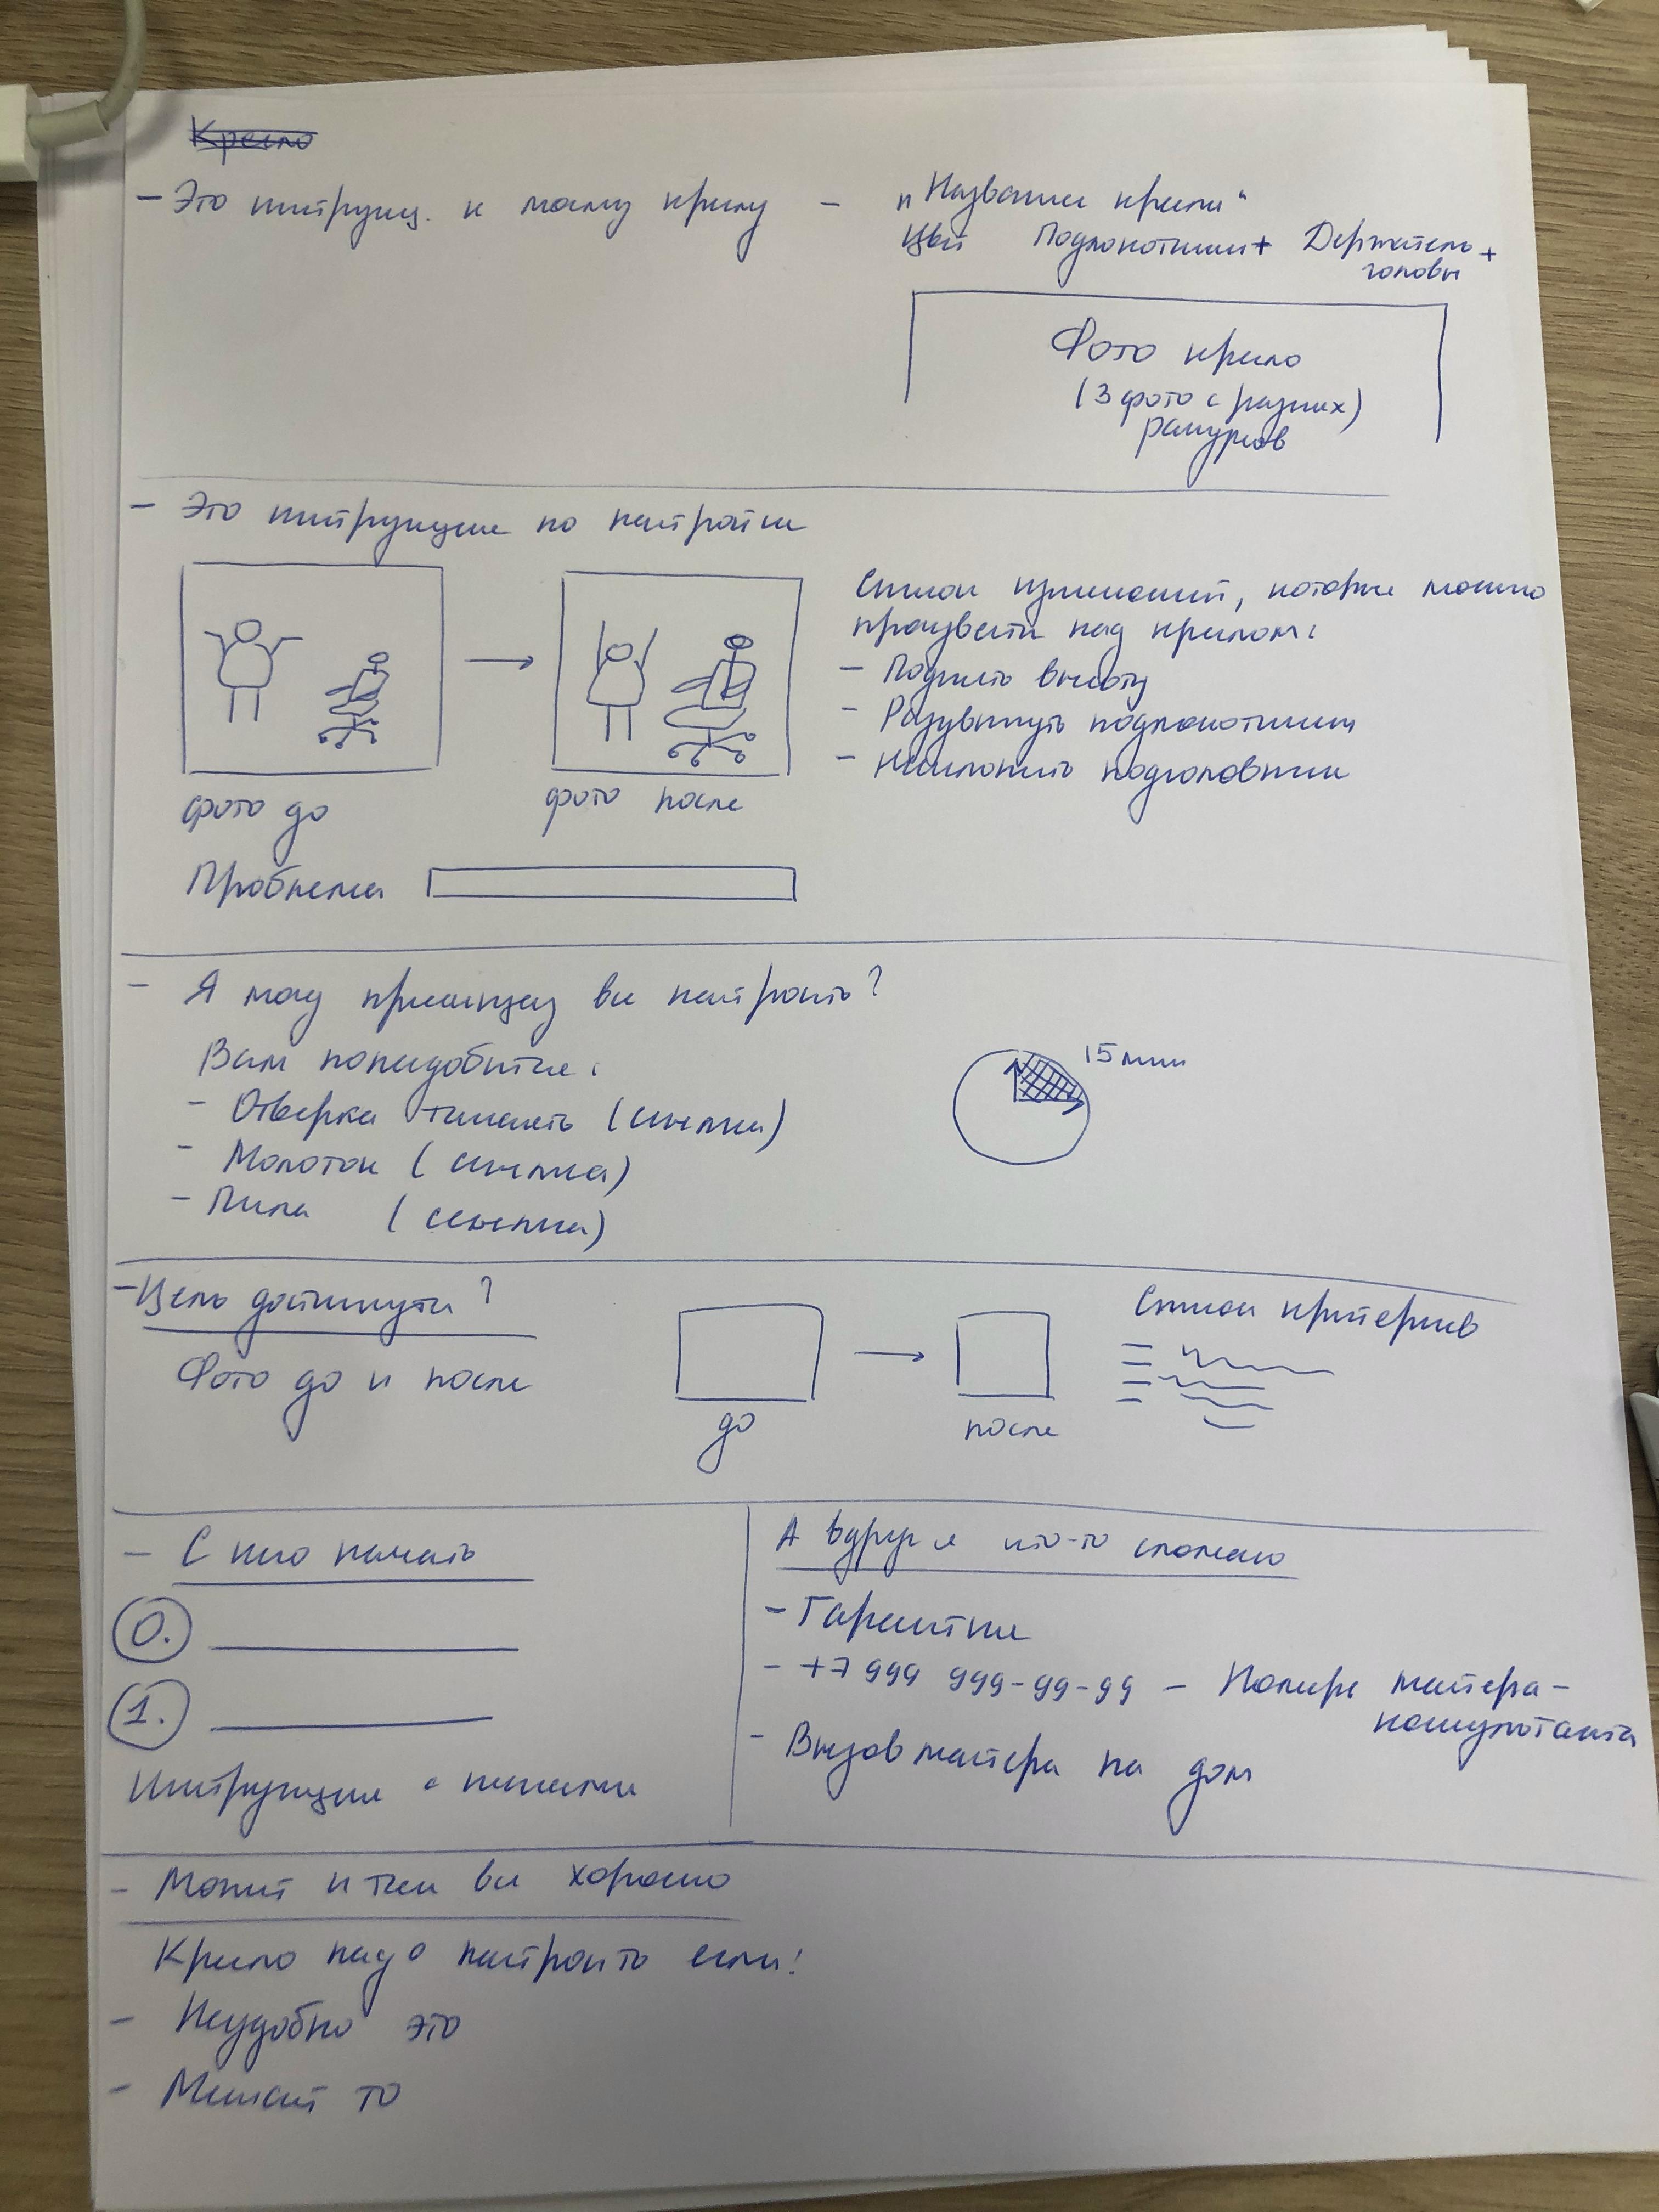 Кресло
- Это инструкц. к моему креслу - "Название кресла"
Цвет Подлокотники+ Держатель + головы
Фото кресло
(3 фото с разных)
ракурсов
- Это инструкция по настройке
Список изменений, которые можно
произвести над креслом:
- Поднять высоту
- Раздвинуть подлокотники
- Наклонить подголовник
фото до
фото после
Проблема
- Я могу прямщяз все настроить?
Вам понадобится:
- Отверка (ссылка)
15 мин
- Молоток (ссылка)
- Пила (ссылка)
- Цель достигнута?
Список критериев
Фото до и после
до
после
- С чего начать
0.
1.
Инструкция с шагами
А вдруг я что-то сломаю
- Гарантия
- +7 999 999-99-99 - Номере мастера-
консультанта
- Вызов мастера на дом
- Может и так все хорошо
Кресло надо настроить если:
- Неудобно это
- Мешает то